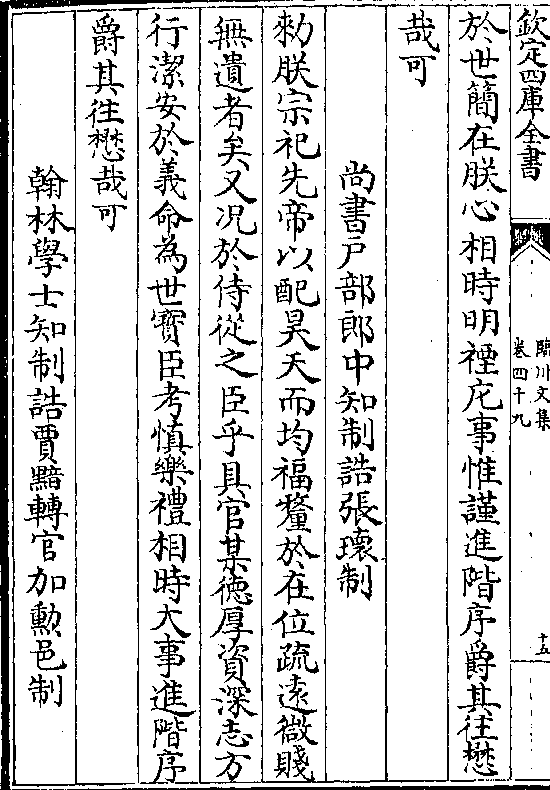 欽定四庫全書
臨川文集
卷四十九
十五
於世簡在朕心相時明禋庀事惟謹進階序爵其往懋
哉可
尚書戶部郎中知制誥張瓌制
勑朕宗祀先帝以配昊天而均福釐於在位疏遠微賤
無遺者矣又况於侍從之臣乎具官某德厚資深志方
行潔安於義命為世寶臣考慎樂禮相時大事進階序
爵其往懋哉可
翰林學士知制誥賈黯轉官加勲邑制